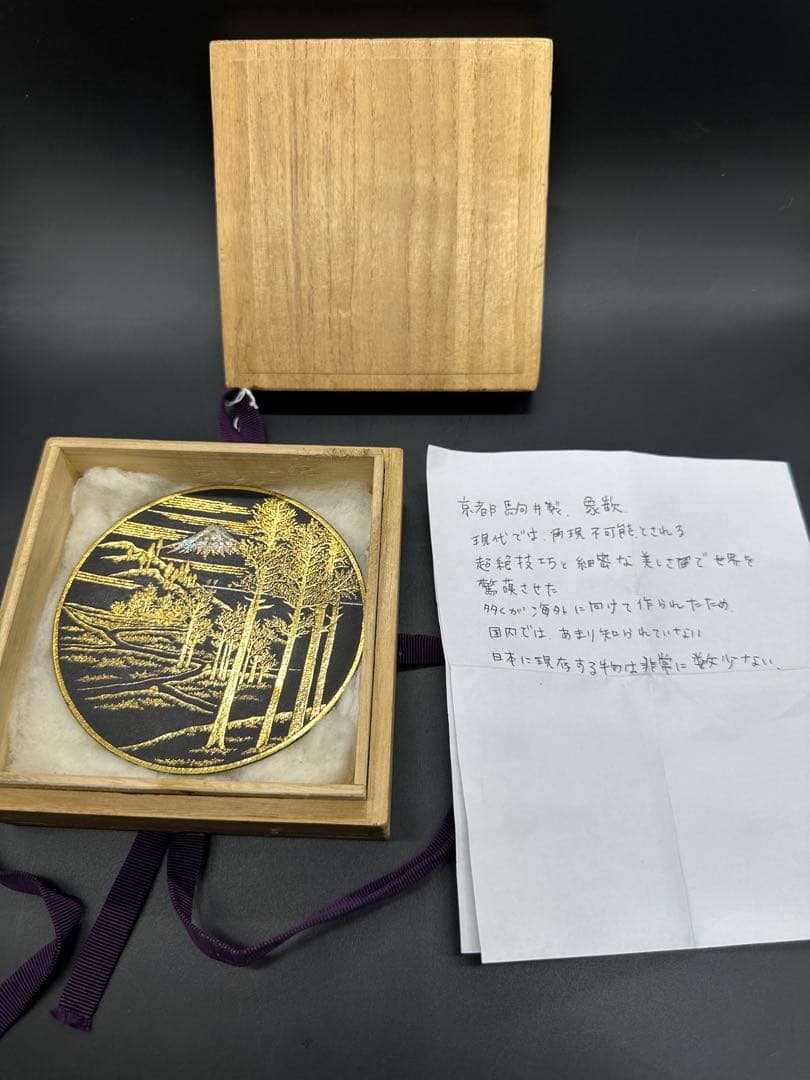 京都駒井製、象嵌
現代では、再現不可能とされる
超絶技巧と細密な美しさで世界を
驚嘆させた
多くが海外に向けて作られたため
国内では、あまり知られていない
日本に現存する物は非常に数少ない、